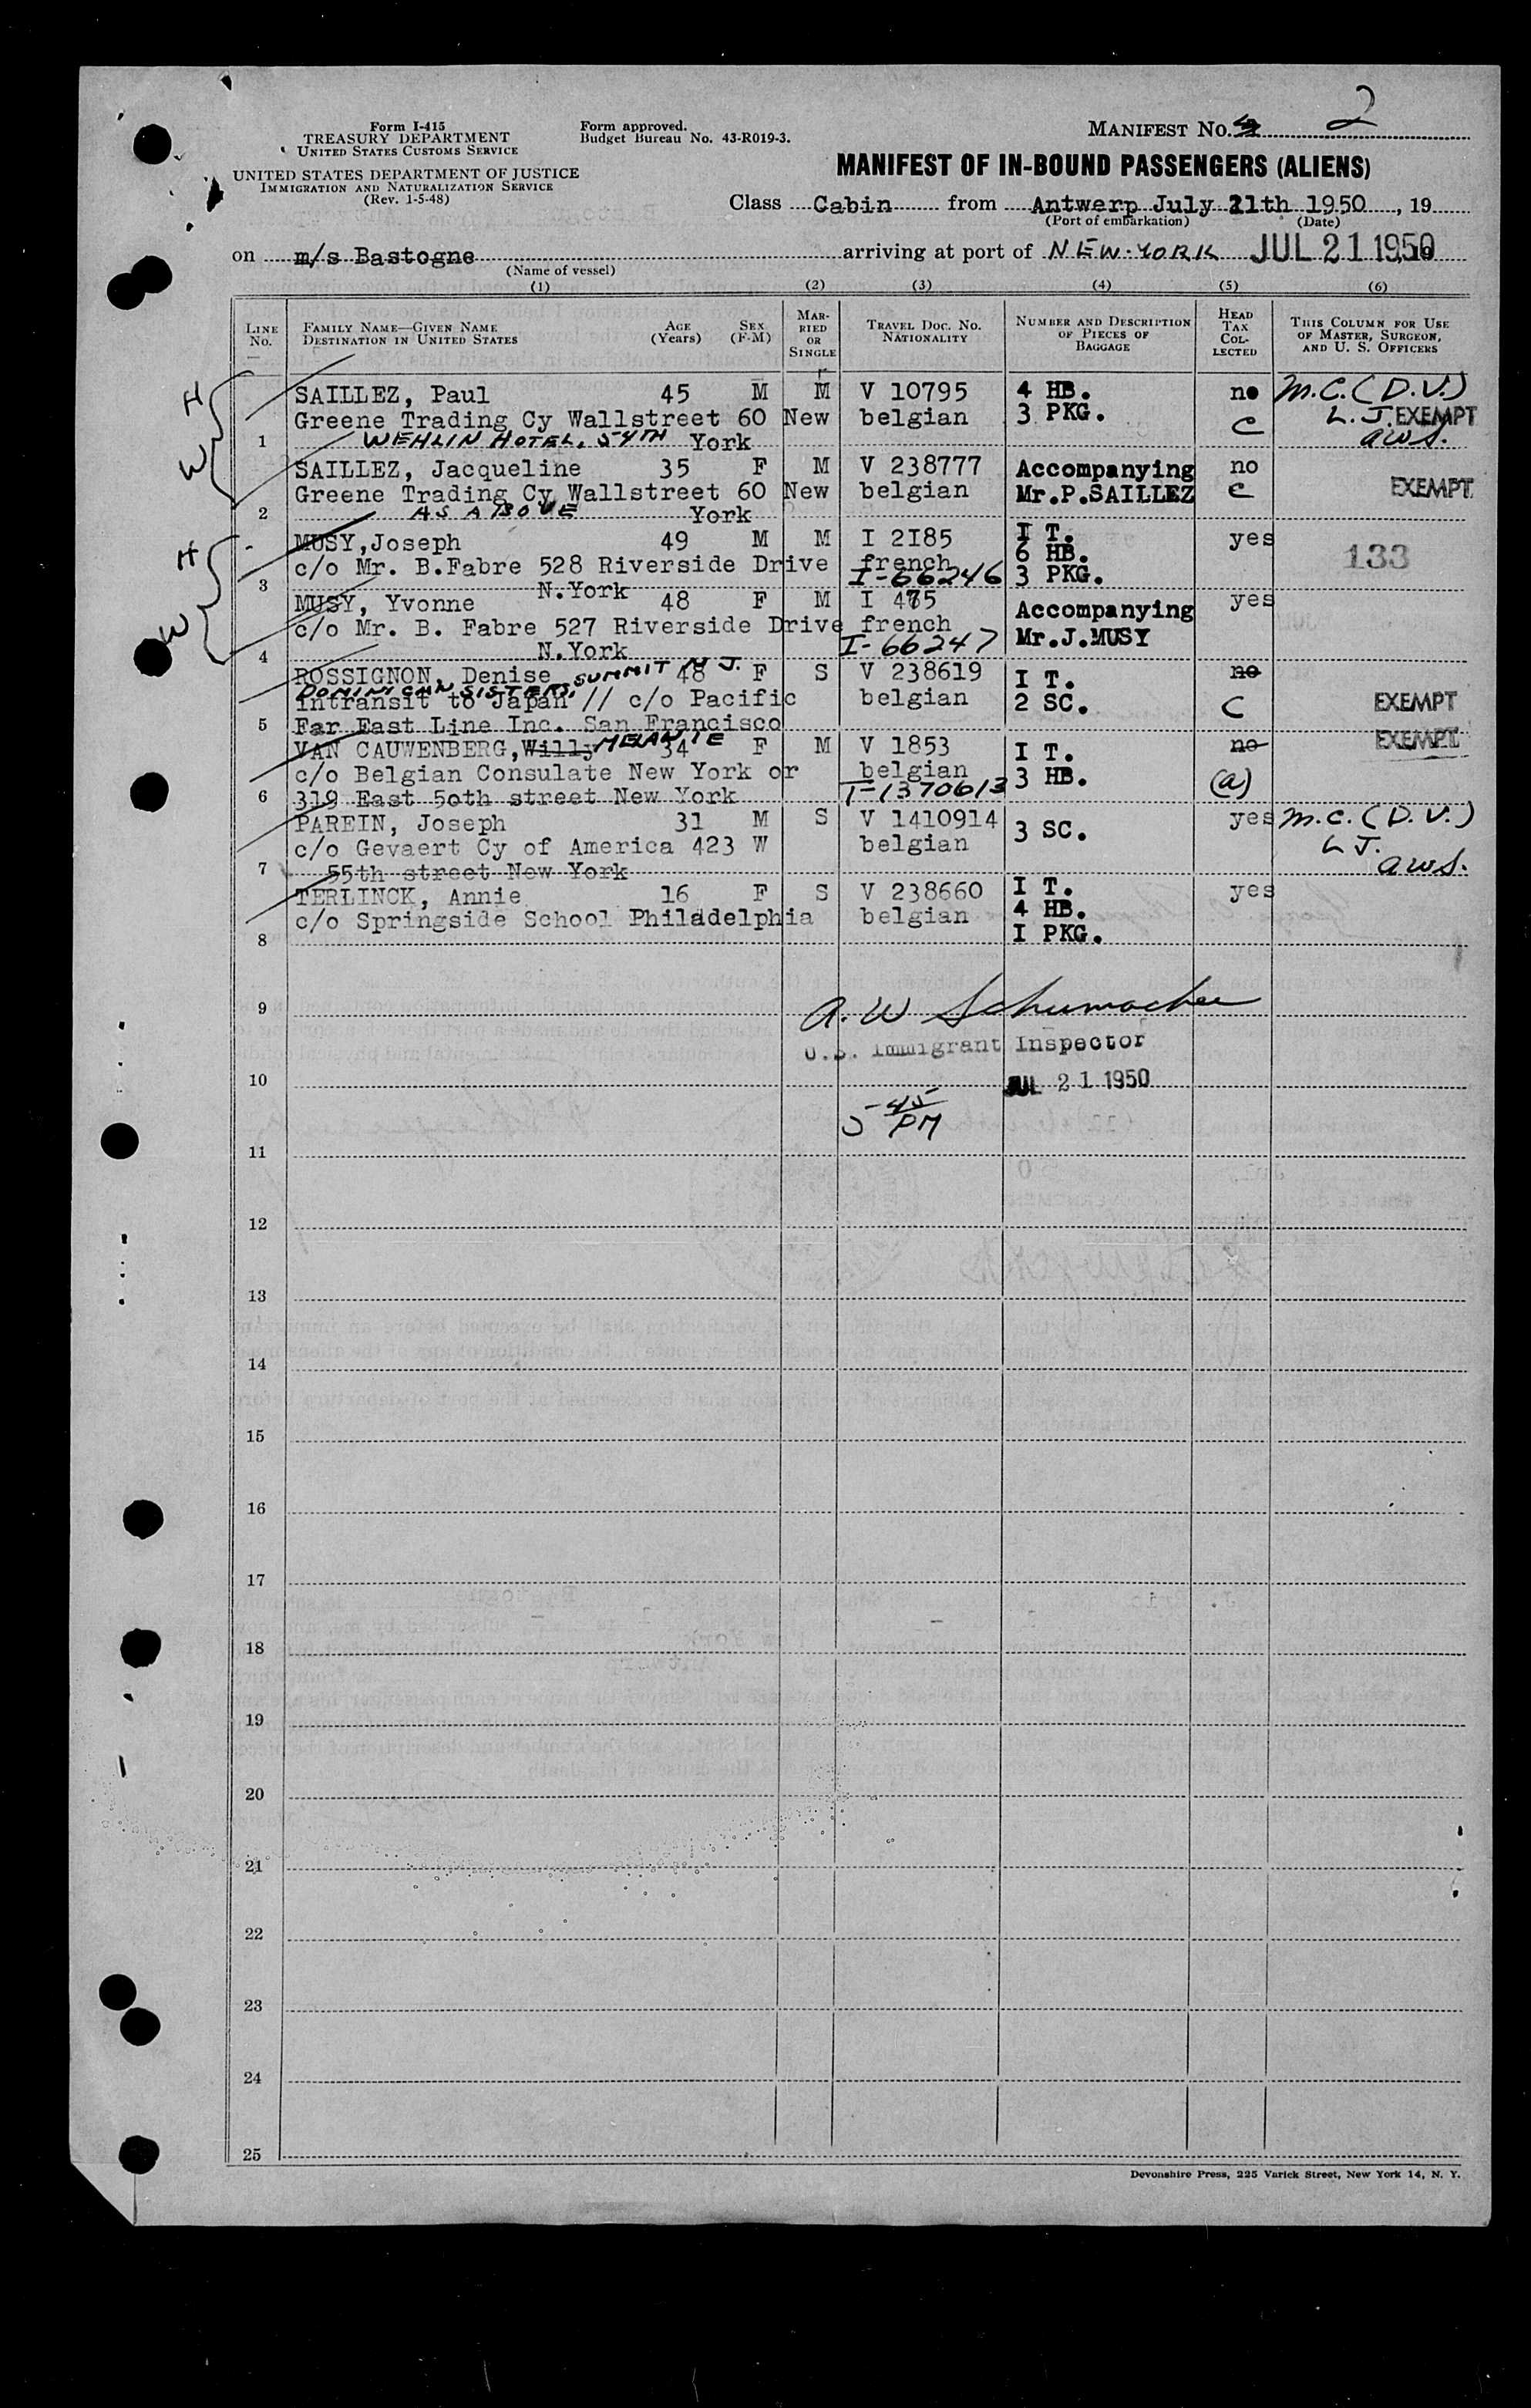 Form I-415
TREASURY DEPARTMENT
UNITED STATES CUSTOMS SERVICE
UNITED STATES DEPARTMENT OF JUSTICE
IMMIGRATION AND NATURALIZATION SERVICE
(Rev. 1-5-48)
Form approved.
Budget Bureau No. 43-R019-3.
MANIFEST NO. 2
MANIFEST OF IN-BOUND PASSENGERS (ALIENS)
Class Cabin from Antwerp July 11th 1950, 19
(Port of embarkation) (Date)
on m/s Bastogne arriving at port of NEW-YORK JUL 21 1950
(Name of vessel)
(1) (2) (3) (4) (5) (6)
LINE NO.
FAMILY NAME—GIVEN NAME
DESTINATION IN UNITED STATES
AGE (Years)
SEX (F-M)
MARRIED OR SINGLE
TRAVEL DOC. NO.
NATIONALITY
NUMBER AND DESCRIPTION OF PIECES OF BAGGAGE
HEAD TAX COLLECTED
THIS COLUMN FOR USE OF MASTER, SURGEON, AND U. S. OFFICERS
H
W
SAILLEZ, Paul 45 M M V 10795 4 HB. no M.C. (D.V.)
Greene Trading Cy Wallstreet 60 New belgian 3 PKG. C L.J. EXEMPT
1 WEHLIN HOTEL, 54TH York aws.
SAILLEZ, Jacqueline 35 F M V 238777 Accompanying no
Greene Trading Cy Wallstreet 60 New belgian Mr.P.SAILLEZ C EXEMPT
2 AS ABOVE York
H
W
MUSY,Joseph 49 M M I 2I85 I T. yes
c/o Mr. B.Fabre 528 Riverside Drive french 6 HB. 133
3 N.York I-66246 3 PKG.
MUSY, Yvonne 48 F M I 475 Accompanying yes
c/o Mr. B. Fabre 527 Riverside Drive french Mr.J.MUSY
4 N.York I-66247
ROSSIGNON, Denise SUMMIT N J. 48 F S V 238619 I T. no
DOMINICAN SISTERS,
intransit to Japan // c/o Pacific belgian 2 SC. C EXEMPT
5 Far East Line Inc. San Francisco
VAN CAUWENBERG,Willy MELANIE 34 F M V 1853 I T. no EXEMPT
c/o Belgian Consulate New York or belgian 3 HB. (a)
6 319 East 5oth street New York T-1370613
PAREIN, Joseph 31 M S V 1410914 3 SC. yes M.C. (D.V.)
c/o Gevaert Cy of America 423 W belgian L J.
7 55th street New York aws.
TERLINCK, Annie 16 F S V 238660 I T. yes
c/o Springside School Philadelphia belgian 4 HB.
8 I PKG.
9 A. W Schumacher
U.S. Immigrant Inspector
10 JUL 21 1950
5 45 PM
11
12
13
14
15
16
17
18
19
20
21
22
23
24
25
Devonshire Press, 225 Varick Street, New York 14, N. Y.